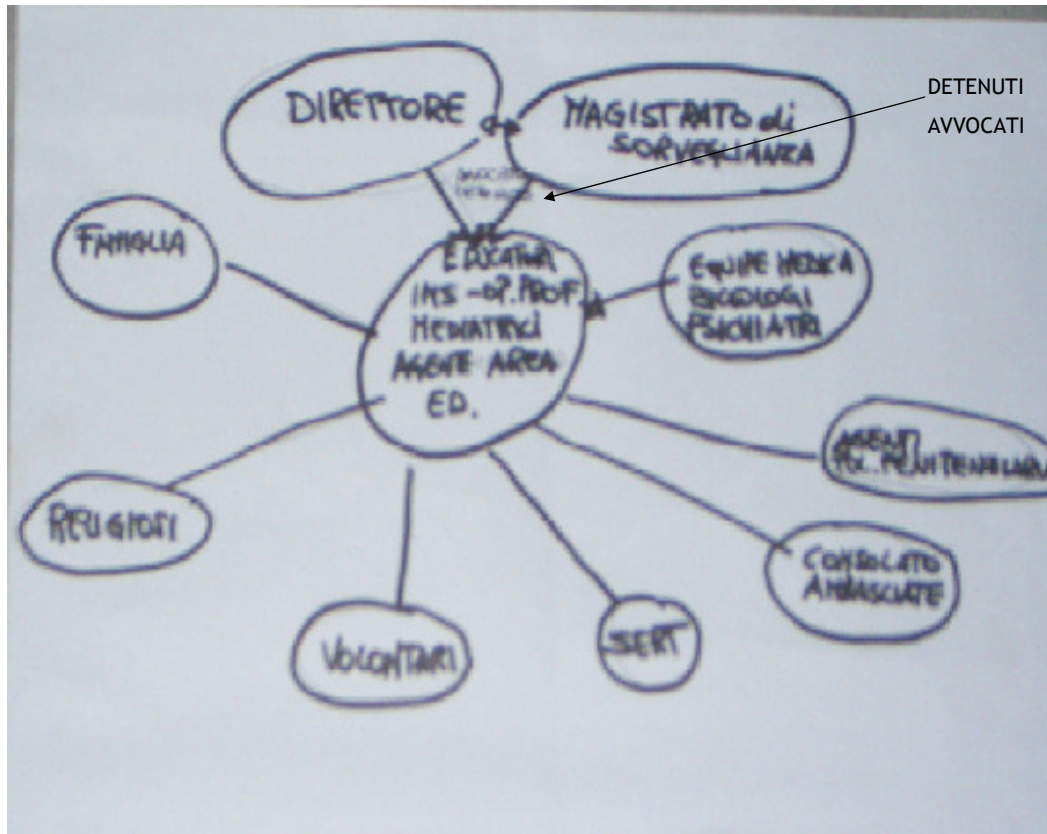 DIRETTORE
MAGISTRATO di
SORVEGLIANZA
DETENUTI
AVVOCATI
FAMIGLIA
EDUCATORI
MEDIATRICI
AGENTE AREA
ED.
EQUIPE MEDICA
PSICOLOGI
PSICHIATRI
AGENTI
POL. PENITENZIARIA
RELIGIOSI
CONSOLATO
AMBASCIATE
VOLONTARI
SERT